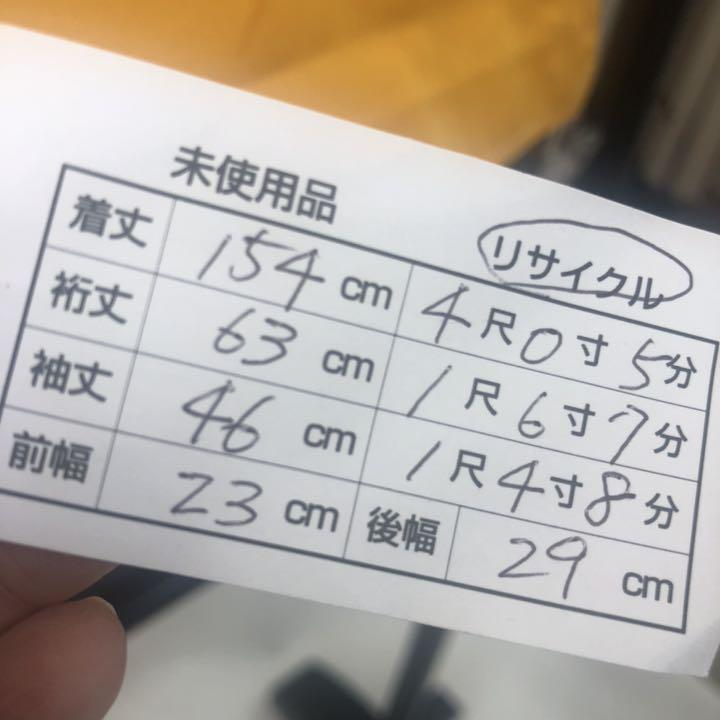 未使用品 リサイクル
着丈 154 cm 4尺0寸5分
裄丈 63 cm 1尺6寸7分
袖丈 46 cm 1尺4寸8分
前幅 23 cm 後幅 29 cm